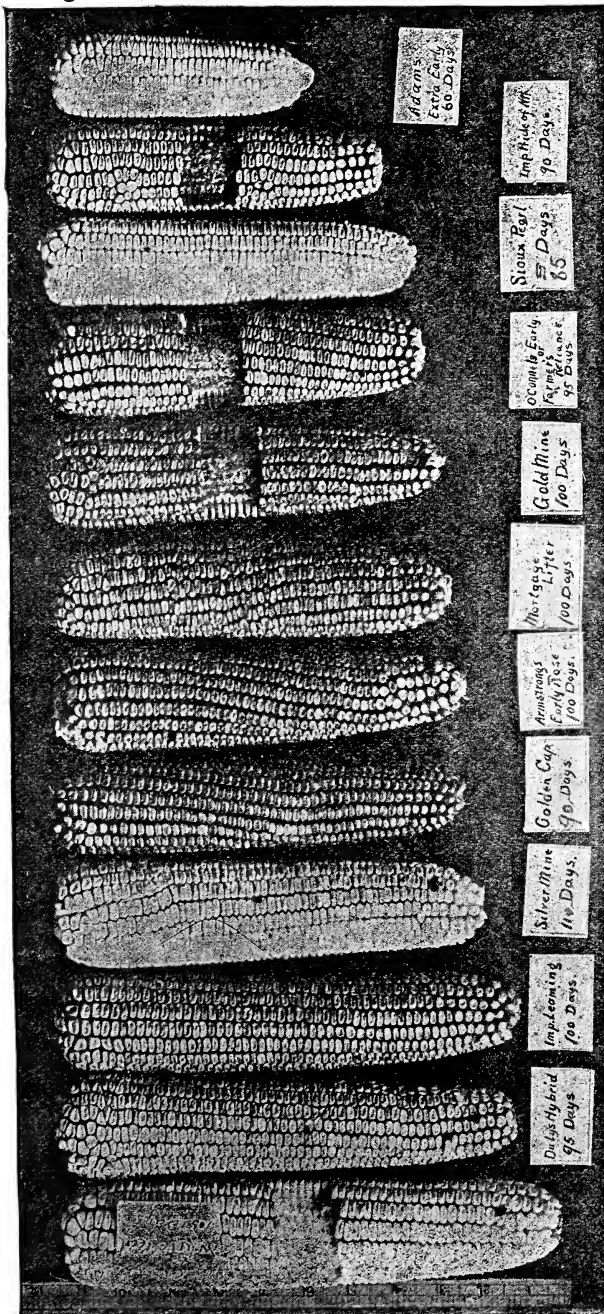 Adams
Extra Early
60 Days
Imp Pride of
90 Days
Sioux Pearl
Days
85
OConnels Early
or
Farmers
Reliance
95 Days
Gold Mine
100 Days
Mortgage
Lifter
100 Days
Armstrongs
Early Rose
100 Days.
Golden Cap
90 Days
Silver Mine
110 Days.
Imp. Leaming
100 Days.
Dalys Hybrid
95 Days